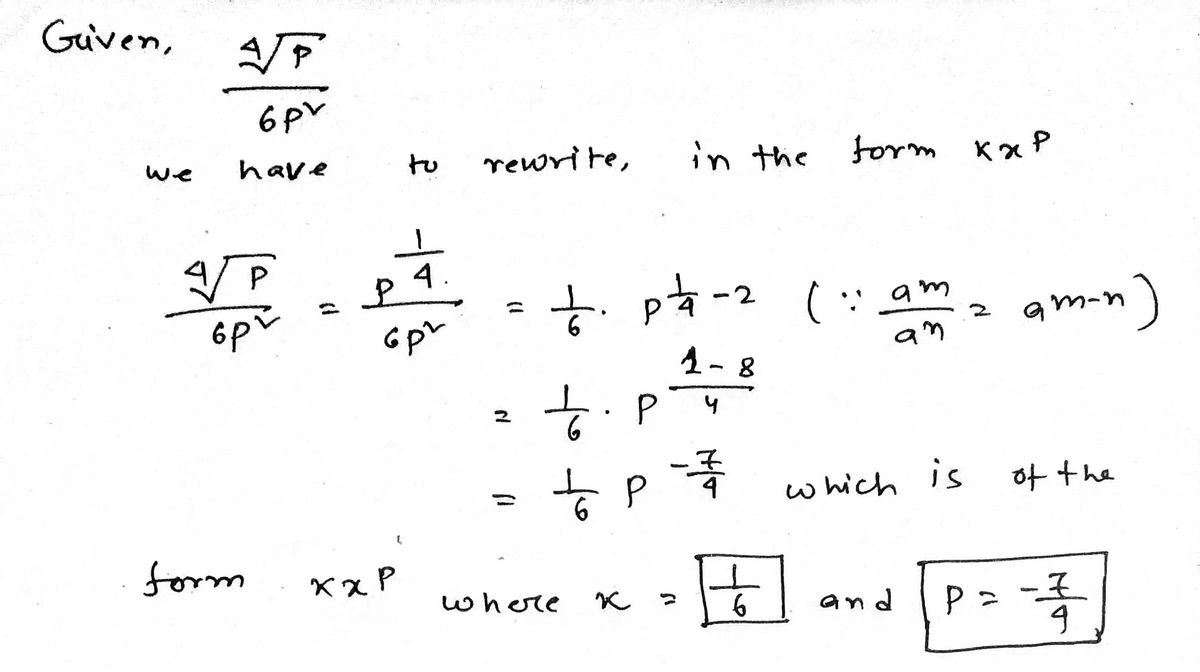 Given, ∜P / 6p²
we have to rewrite, in the form K x^P
∜P / 6p² = p^(1/4) / 6p² = 1/6 · p^(1/4 - 2) (∵ a^m / a^n = a^(m-n))
= 1/6 · P^((1-8)/4)
= 1/6 P^(-7/4) which is of the
form K x^P where K = 1/6 and P = -7/4